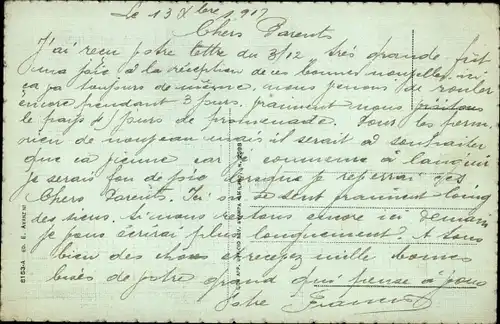 Le 13 Xbre 1917
Chers Parents
J'ai reçu votre lettre du 3/12 très grande fut
ma joie à la réception de ces bonnes nouvelles. ici
ça va toujours de même. nous venons de rouler
encore pendant 3 jours. vraiment nous visitons
le pays 4 jours de promenade. Tous les perm.
rien de nouveau mais il serait à souhaiter
que ça vienne car je commence à languir
je serais fou de joie lorsque je reverrai mes
Chers Parents. Ici on se sent vraiment loing
des siens. Si nous restons encore ici demain
je vous écrirai plus longuement. A tous
bien des choses et recevez mille bonnes
bises de votre grand qui pense à vous
Votre
6153-A ED. E.